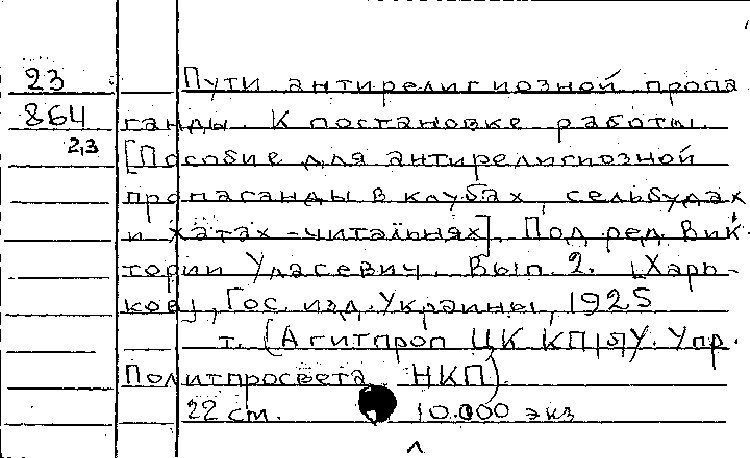 23 Пути антирелигиозной пропа
864 ганды. К постановке работы.
2,3 [Пособие для антирелигиозной
пропаганды в клубах, сельбудах
и хатах-читальнях]. Под ред. Вик-
тории Уласевич. Вып. 2. [Харь-
ков], Гос. изд. Украины, 1925
т. (Агитпроп ЦК КП/б/У. Упр.
Политпросвета НКП)
22 см. 10.000 экз